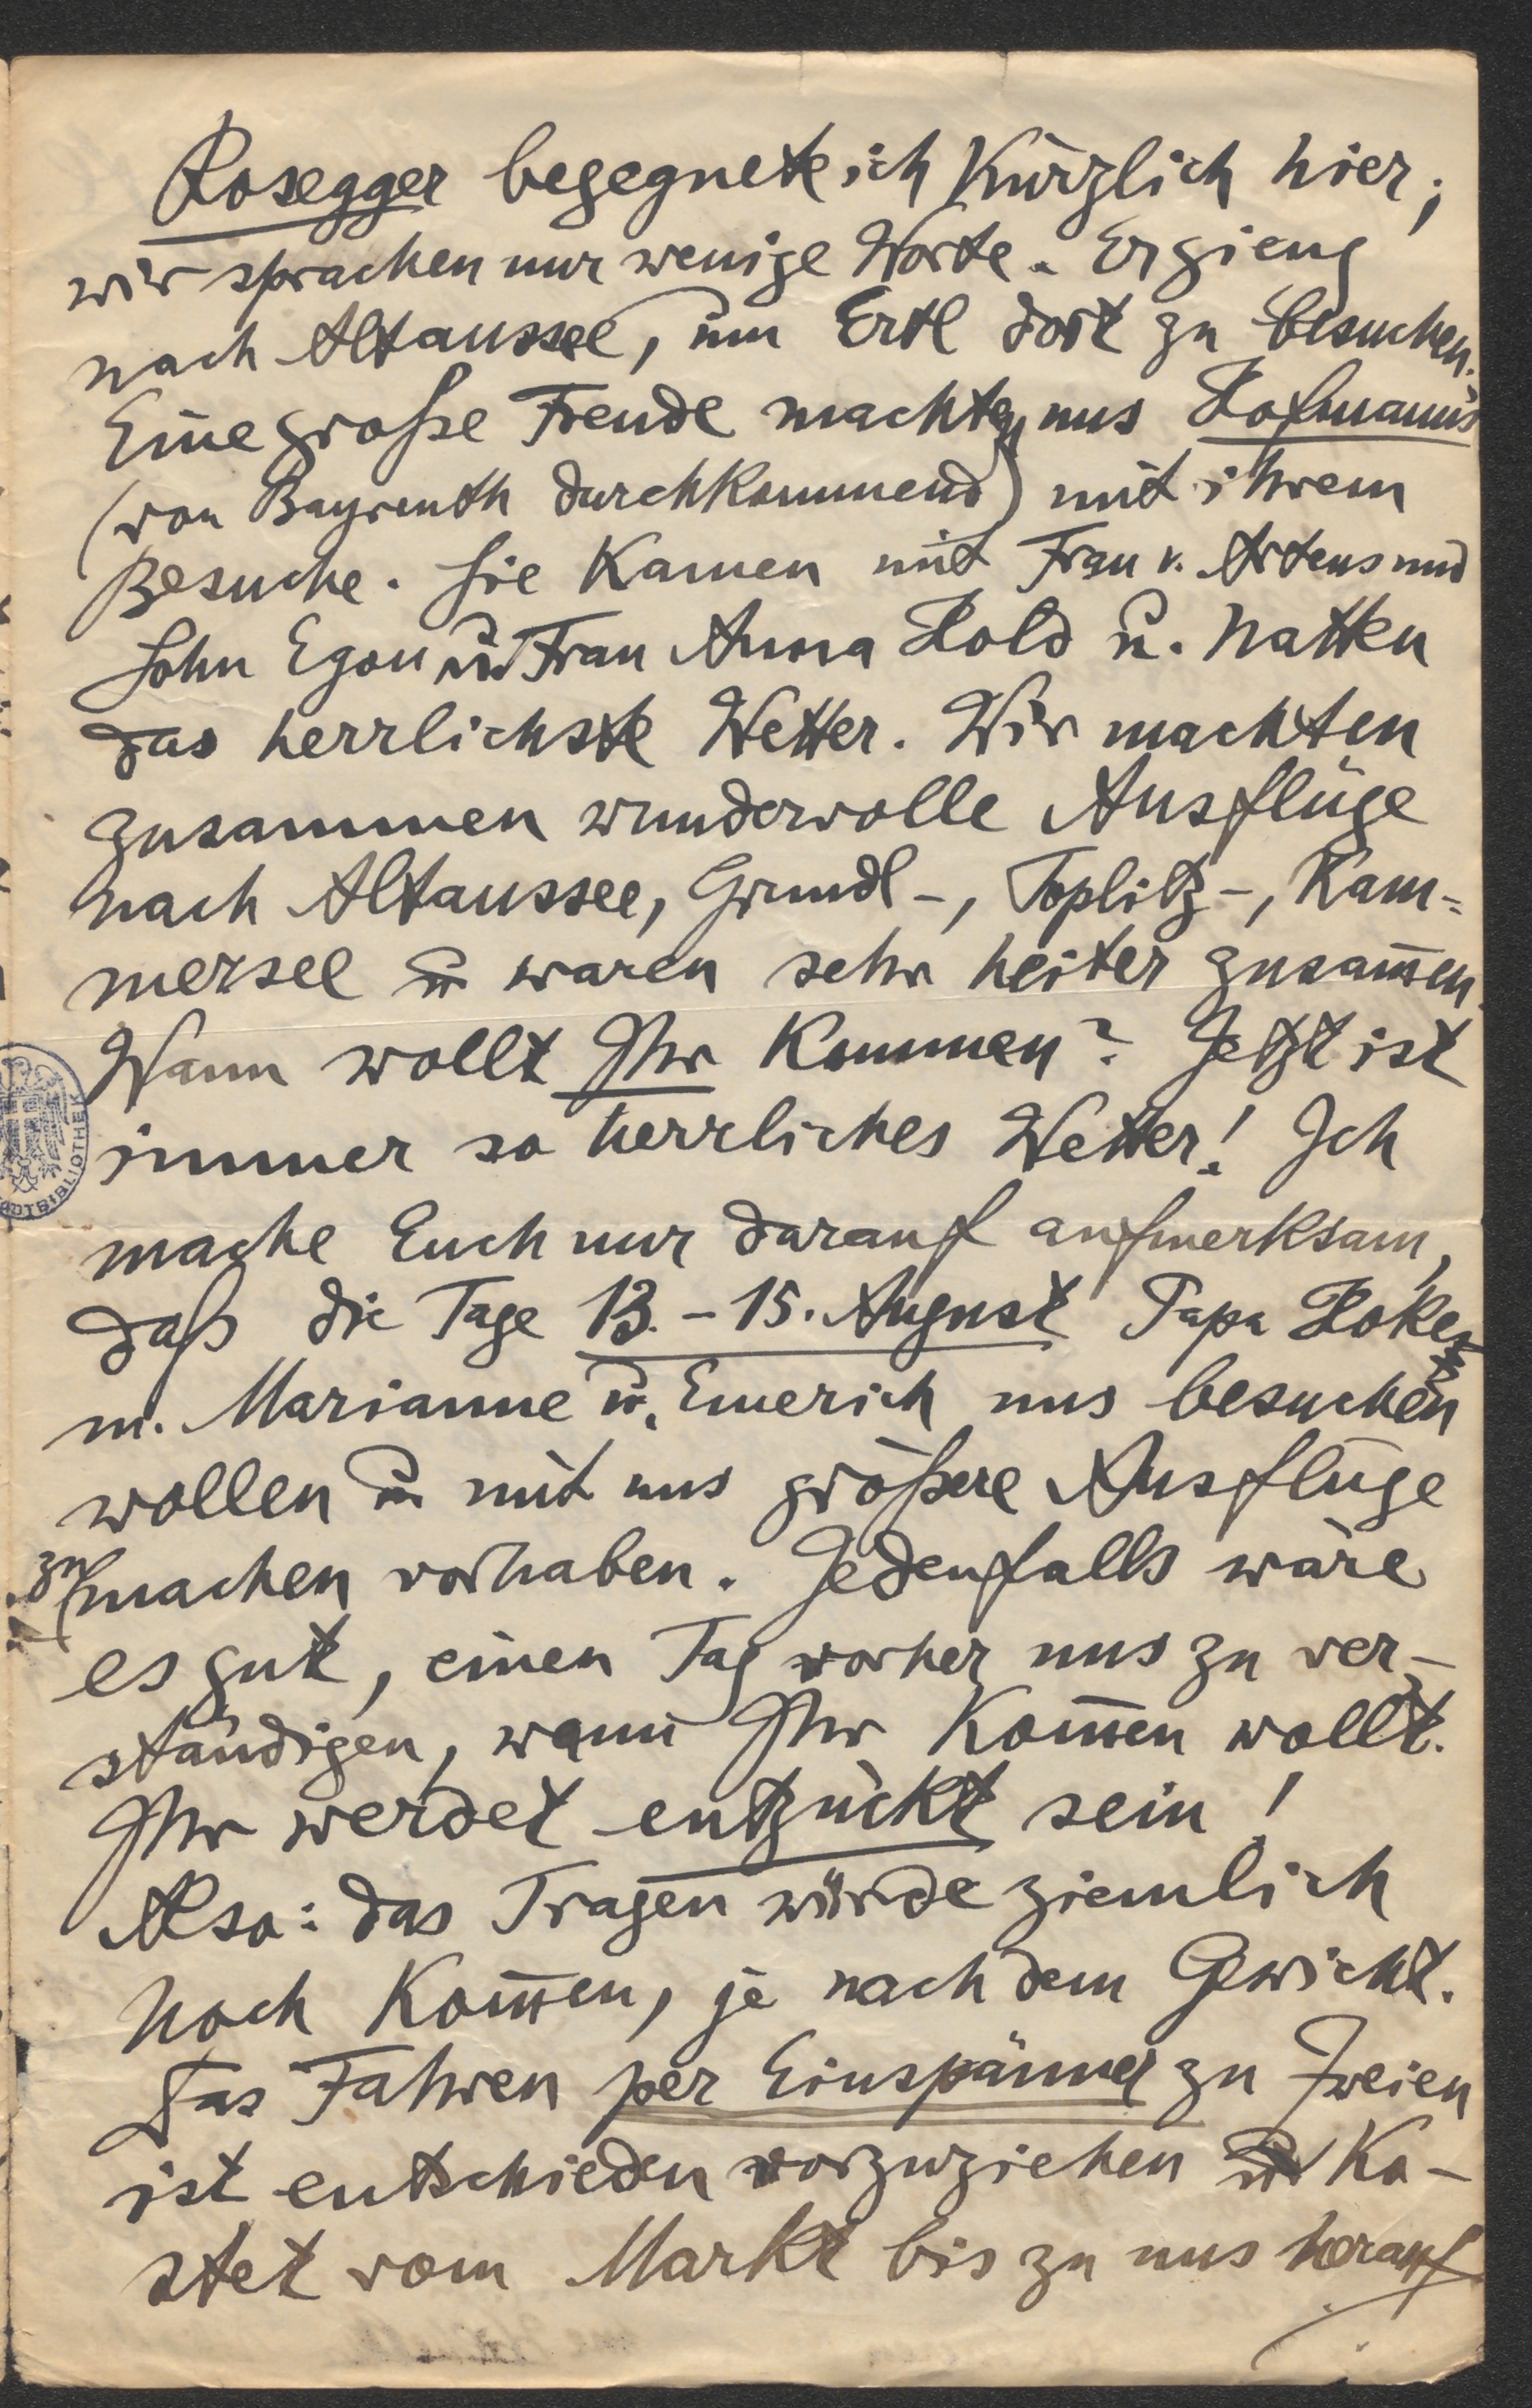 Rosegger begegnete ich kürzlich hier;
wir sprachen nur wenige Worte. Er gieng
nach Altaussee, um Ertl dort zu besuchen.
Eine große Freude machten uns Hofmann's
(von Bayreuth durchkommend) mit ihrem
Besuche. Sie kamen mit Frau v. Artens und
Sohn Egon u Frau Anna Hold u. hatten
das herrlichste Wetter. Wir machten
zusammen wundervolle Ausflüge
nach Altaussee, Grundl-, Toplitz-, Kam-
mersee u waren sehr heiter zusam̅en.
Wann wollt Ihr kommen? Jetzt ist
immer so herrliches Wetter! Ich
mache Euch nur darauf aufmerksam,
daß die Tage 13. - 15. August Papa
m. Marianne u. Emerich uns besuchen
wollen u mit uns größere Ausflüge
zu machen vorhaben. Jedenfalls wäre
es gut, einen Tag vorher uns zu ver-
ständigen, wann Ihr kom̅en wollt.
Ihr werdet entzückt sein!
Also: das Tragen würde ziemlich
hoch kom̅en, je nach dem Gewicht.
Das Fahren per Einspänner zu Zweien
ist entschieden vorzuziehen u Ko-
stet vom Markt bis zu uns herauf
STADTBIBLIOTHEK